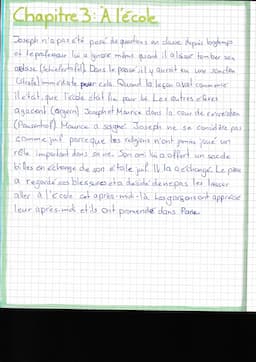 Chapitre 3: A l'école
Joseph n'a pas été posé de questions en classe depuis longtemps
et le professeur l'a ignoré même quand il a laissé tomber son
ardoise (Schiefertafel). Dans le passé il y aurait eu une sanction
(Strafe) immédiate pour cela. Quand la leçon avait commencé
il était, que l'école était fini pour lui. Les autres élèves
agacent (ärgern) Joseph et Maurice dans la cour de récréation
(Pausenhof). Maurice a saigné. Joseph ne se considère pas
comme juif parce que les religions n'ont jamais joué un
rôle important dans sa vie. Son ami lui a offert un sac de
billes en échange de son étoile juif. Il l'a échangé. Le père
a regardé ses blessures et a décidé de ne pas les laisser
aller à l'école cet après-midi-là. Les garçons ont apprécié
leur après-midi et ils ont promené dans Paris.